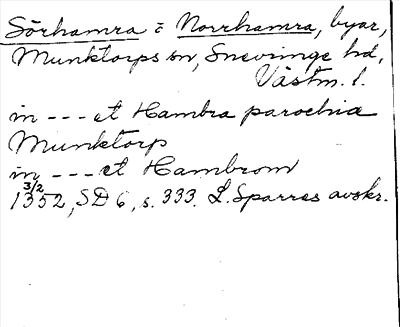 Sörhamra o Norrhamra, byar,
Munktorps sn, Snevinge hd,
Västm. l.
in --- et Hambra parochia
Munktorp
in --- et Hambrom
1352 3/2, SD 6, s. 333. L. Sparres avskr.